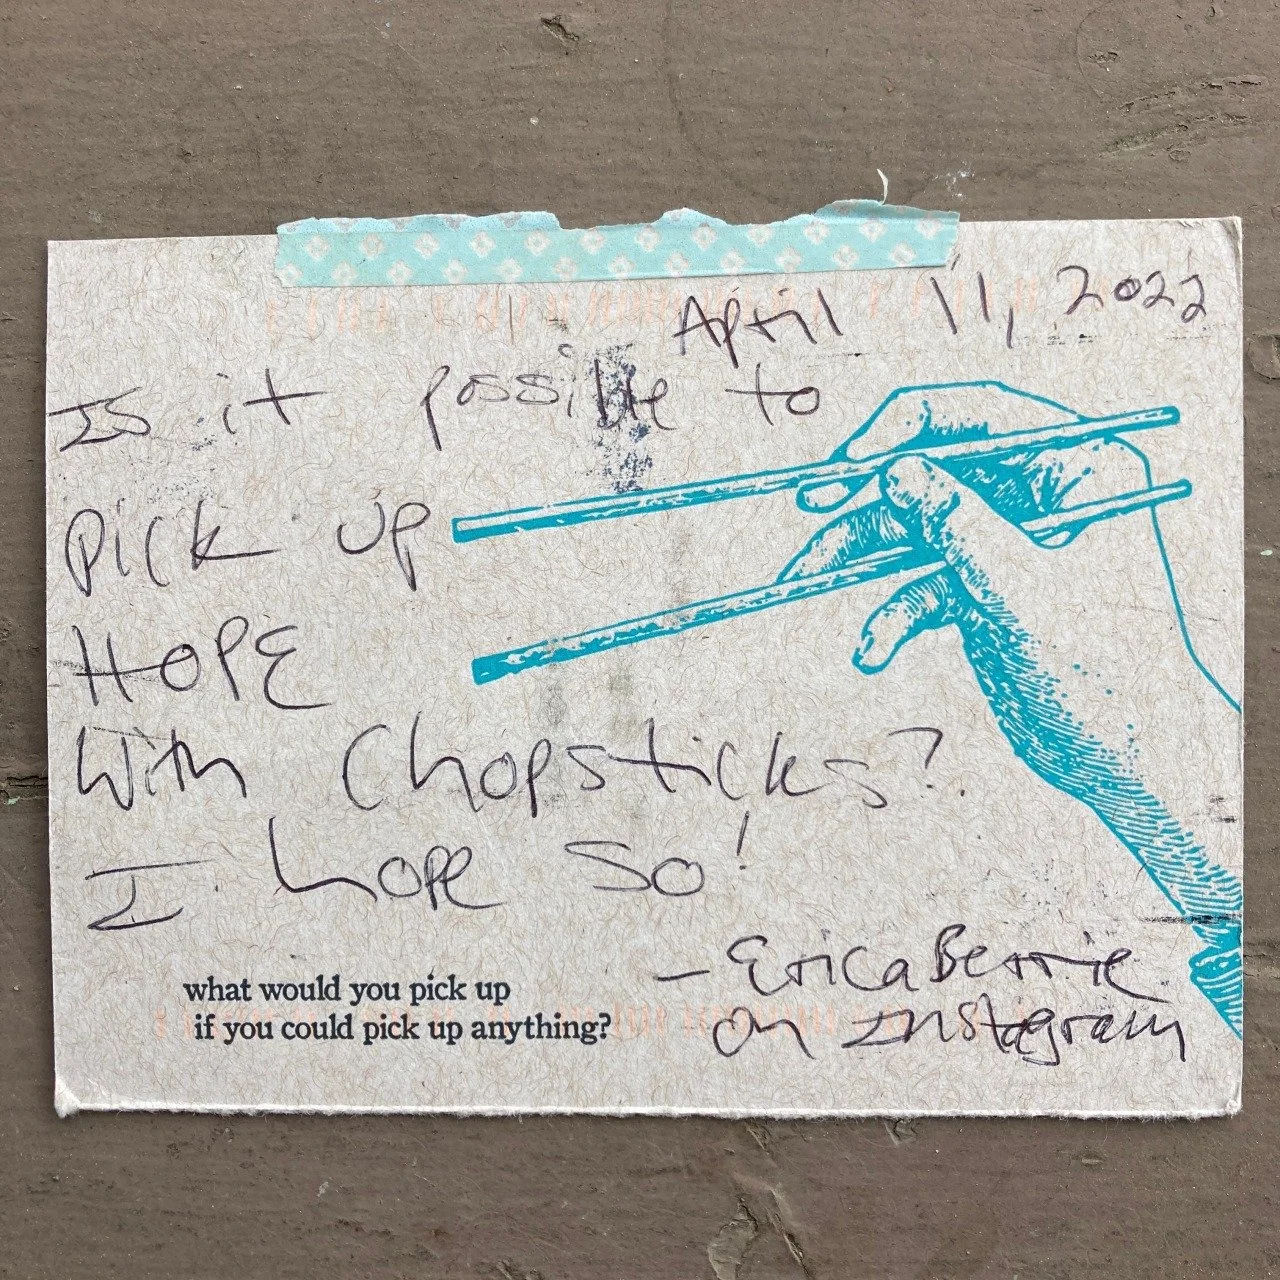 April 11, 2022
Is it possible to
pick up
HOPE
With Chopsticks?
I hope so!
- EricaBerrie
on Instagram
what would you pick up
if you could pick up anything?